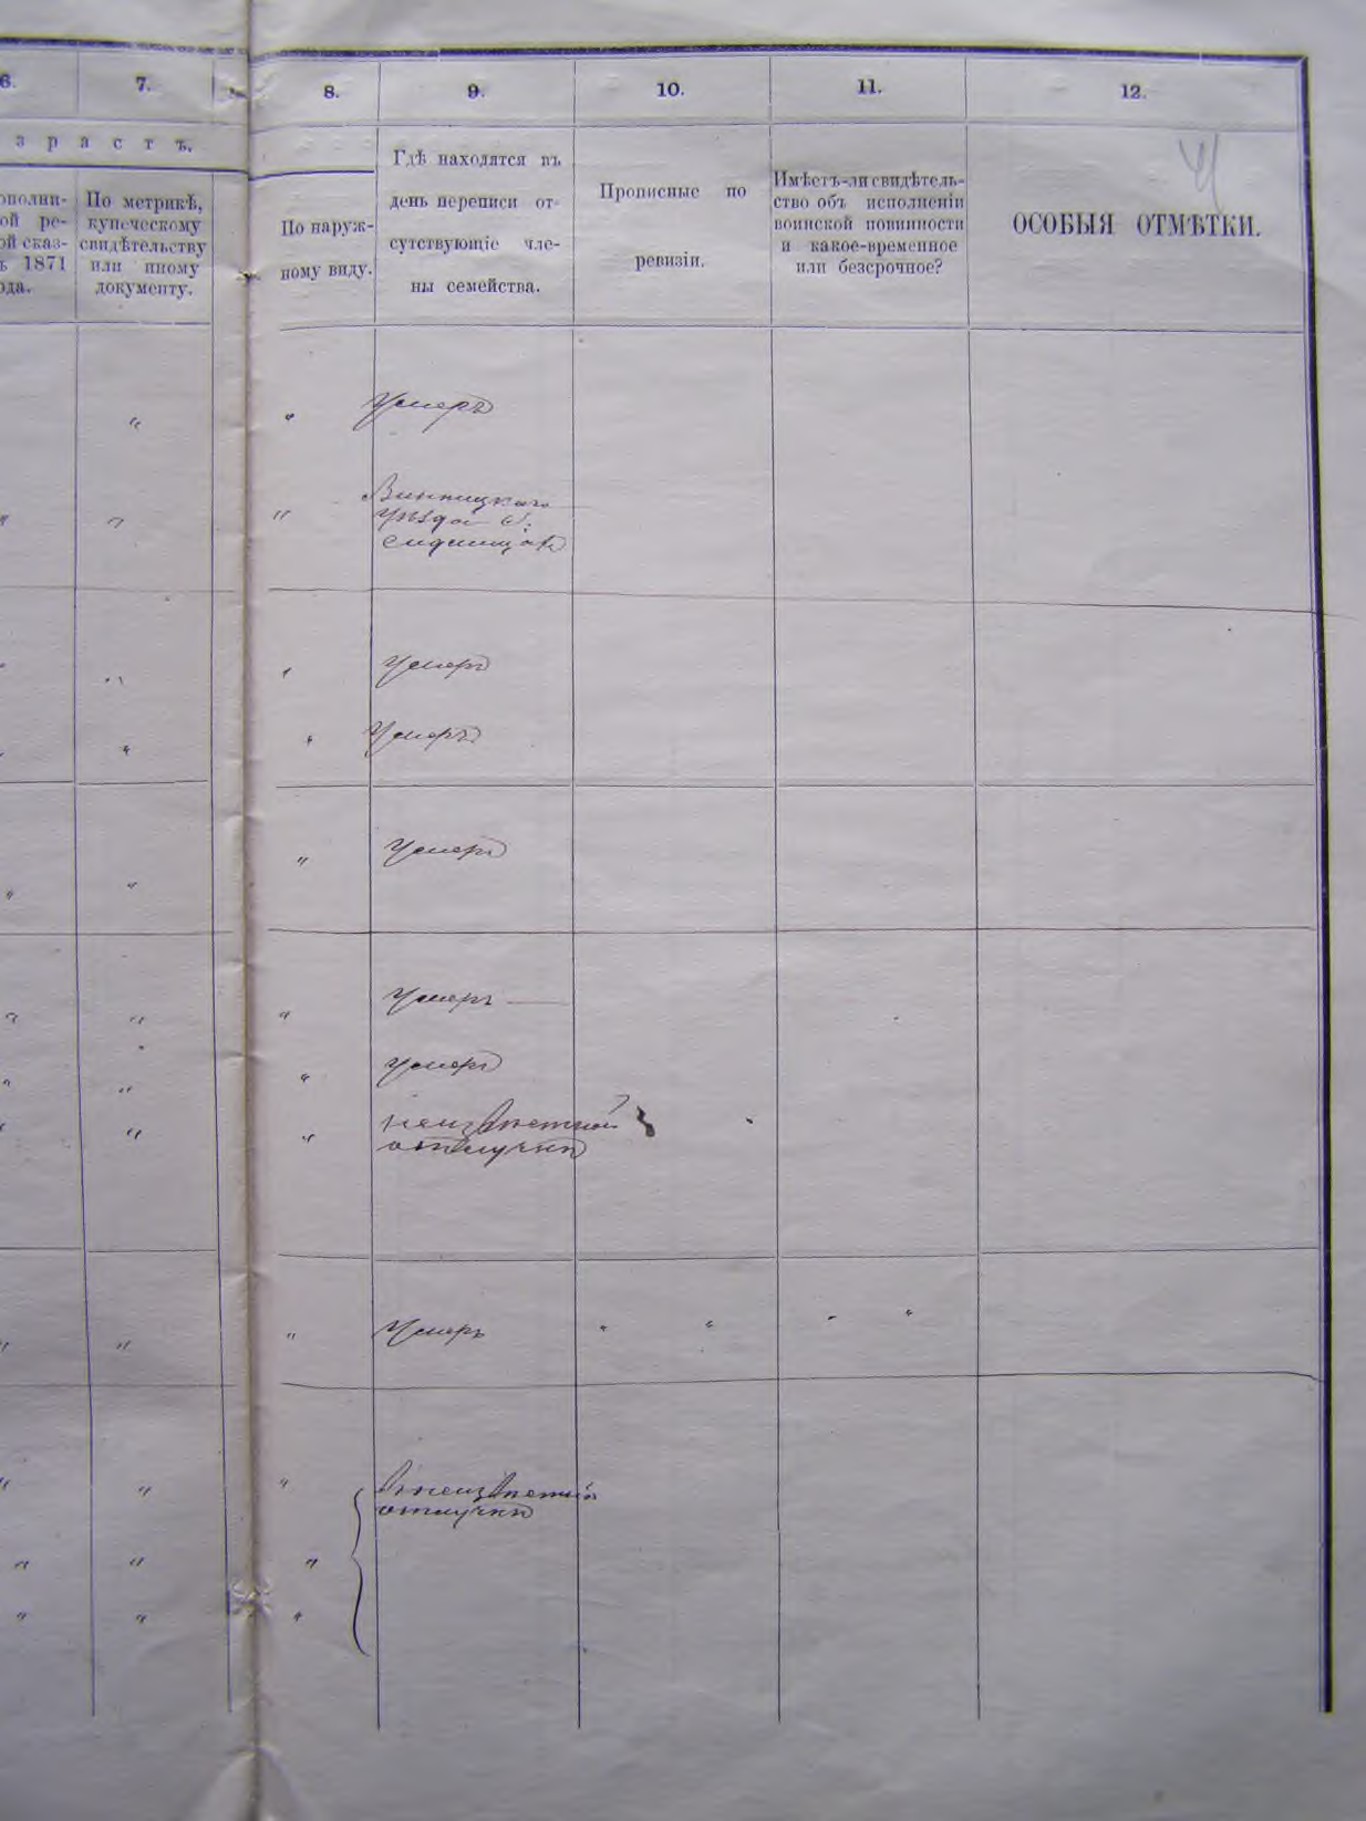 6.
7.
8.
9.
10.
11.
12.
зрастъ.
ополни-
ой ре-
ой сказ-
ъ 1871
ода.
По метрикѣ,
купеческому
свидѣтельству
или иному
документу.
По наруж-
ному виду.
Гдѣ находятся въ
день переписи от-
сутствующіе чле-
ны семейства.
Прописные по
ревизіи.
Имѣетъ-ли свидѣтель-
ство объ исполненіи
воинской повинности
и какое-временное
или безсрочное?
ОСОБЫЯ ОТМѢТКИ.
4
" " Умеръ
" " " Винницкаго
уѣзда с.
" " " Умеръ
" " " Умеръ
" " " Умеръ
" " " Умеръ
" " " Умеръ
" " " неизвѣстной
отлучкѣ
" " " Умеръ " " " "
" " " въ неизвѣстной
отлучкѣ
" " "
" " "